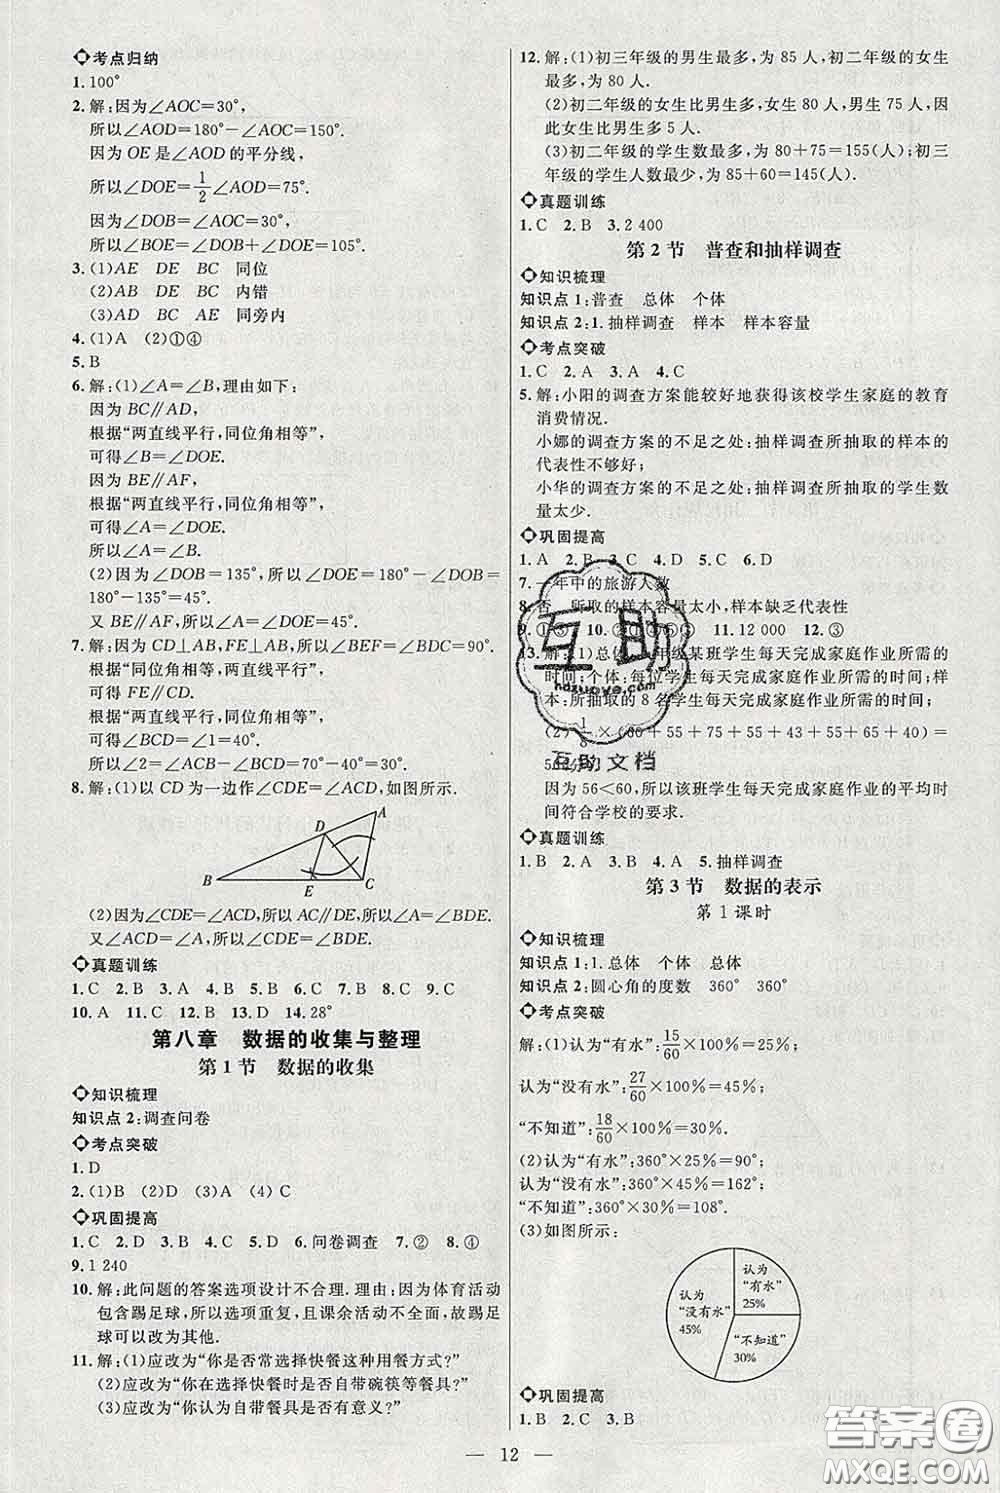 考点归纳
1.100°
2.解:因为∠AOC=30°,
所以∠AOD=180°-∠AOC=150°.
因为 OE 是∠AOD 的平分线,
所以∠DOE=1/2∠AOD=75°.
因为∠DOB=∠AOC=30°,
所以∠BOE=∠DOB+∠DOE=105°.
3.(1)AE DE BC 同位
(2)AB DE BC 内错
(3)AD BC AE 同旁内
4.(1)A (2)①④
5.B
6.解:(1)∠A=∠B,理由如下:
因为 BC∥AD,
根据“两直线平行,同位角相等”,
可得∠B=∠DOE.
因为 BE∥AF,
根据“两直线平行,同位角相等”,
可得∠A=∠DOE.
所以∠A=∠B.
(2)因为∠DOB=135°,所以∠DOE=180°-∠DOB=
180°-135°=45°.
又 BE∥AF,所以∠A=∠DOE=45°.
7.解:因为 CD⊥AB,FE⊥AB,所以∠BEF=∠BDC=90°.
根据“同位角相等,两直线平行”,
可得 FE∥CD.
根据“两直线平行,同位角相等”,
可得∠BCD=∠1=40°.
所以∠2=∠ACB-∠BCD=80°-40°=40°.
8.解:(1)以 CD 为一边作∠CDE=∠ACD,如图所示.
A
D
B
E
C
(2)因为∠CDE=∠ACD,所以 AC∥DE,所以∠A=∠BDE.
又∠ACD=∠A,所以∠CDE=∠BDE.
真题训练
1.C 2.B 3.D 4.A 5.B 6.B 7.B 8.C 9.C
10.A 11.C 12.B 13.D 14.28°
第八章 数据的收集与整理
第 1 节 数据的收集
知识梳理
知识点 2:调查问卷
考点突破
1.D
2.(1)B (2)D (3)A (4)C
巩固提高
1.C 2.D 3.A 4.B 5.C 6.问卷调查 7.② 8.④
9.1 240
10.解:此问题的答案选项设计不合理.理由:因为体育活动
包含踢足球,所以选项重复,且课余活动不全面,故踢足
球可以改为其他.
11.解:(1)应改为“你是否常选择快餐这种用餐方式?”
(2)应改为“你在选择快餐时是否自带碗筷等餐具?”
(3)应改为“你认为自带餐具是否有意义?”
12.解:(1)初三年级的男生最多,为 85 人,初二年级的女生
最多,为 80 人.
(2)初二年级的女生比男生多,女生 80 人,男生 75 人,因
此女生比男生多 5 人.
(3)初二年级的学生数最多,为 80+75=155(人);初三
年级的学生人数最少,为 85+60=145(人).
真题训练
1.C 2.B 3.2 400
第 2 节 普查和抽样调查
知识梳理
知识点 1:普查 总体 个体
知识点 2:1.抽样调查 样本 样本容量
考点突破
1.C 2.A 3.A 4.C
5.解:小阳的调查方案能较好地获得该校学生家庭的教育
消费情况.
小娜的调查方案的不足之处:抽样调查所抽取的样本的
代表性不够好;
小华的调查方案的不足之处:抽样调查所抽取的学生数
量太少.
巩固提高
1.A 2.B 3.B 4.D 5.C 6.D
7.一年中的旅游人数
8.否 所取的样本容量太小,样本缺乏代表性
9.①③ 11.12 000 12.③
13.解:(1)总体:年级某班学生每天完成家庭作业所需的
时间;个体:每位学生每天完成家庭作业所需的时间;样
本:所抽取的 8 名学生每天完成家庭作业所需的时间.
(2)1/8×(60+55+75+55+43+65+40+55)=
因为 56<60,所以该班学生每天完成家庭作业的平均时
间符合学校的要求.
真题训练
1.B 2.A 3.B 4.A 5.抽样调查
第 3 节 数据的表示
第 1 课时
知识梳理
知识点 1:1.总体 个体 总体
知识点 2:圆心角的度数 360° 360°
考点突破
解:(1)认为“有水”:15/60×100%=25%;
认为“没有水”:27/60×100%=45%;
“不知道”:18/60×100%=30%.
(2)认为“有水”:360°×25%=90°;
认为“没有水”:360°×45%=162°;
“不知道”:360°×30%=108°.
(3)如图所示:
认为
“有水”
25%
认为
“没有水”
45%
“不知道”
30%
巩固提高
1.B 2.C 3.B
12
互助
hdzuoye.com
互助文档
答案圈
MXQE.COM